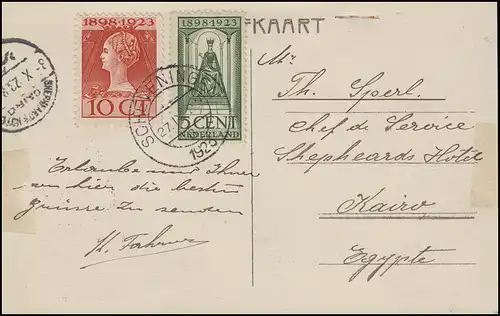 KAART
1898-1923
10 CT
1898-1923
5 CENT
NEDERLAND
SCHEVENINGEN
1923
Mr
Th. Sperl.
chef de Service
Shepheards Hotel
Kairo
Egypte
Erlaube mir Ihnen
von hier die besten
grüsse zu senden